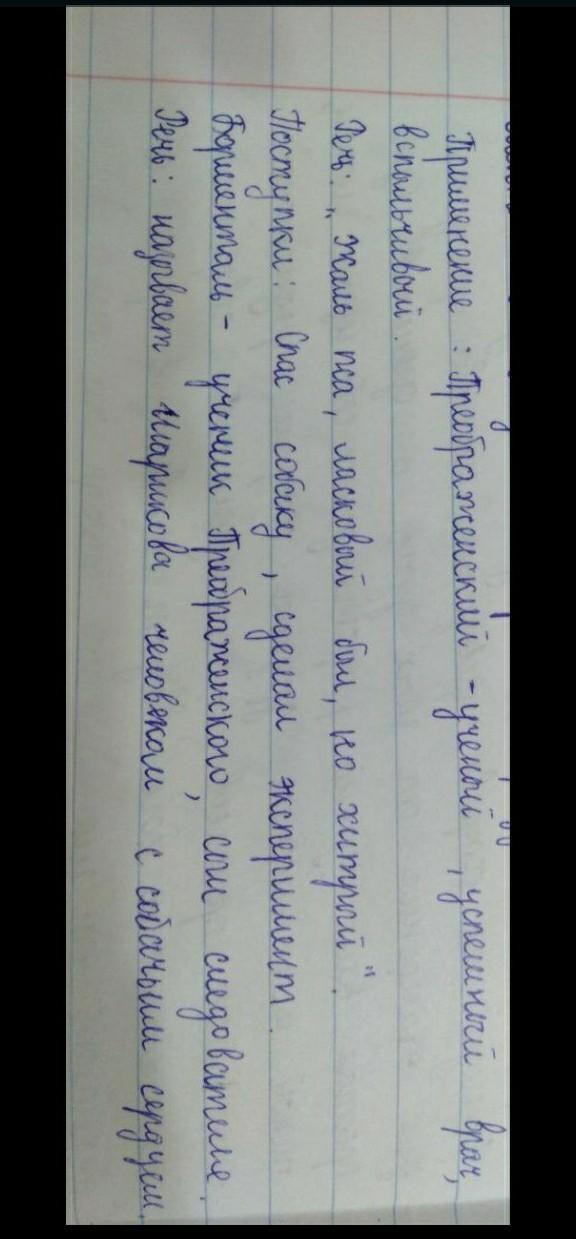 Применение : Преображенский - ученый , успешный врач,
вспыльчивый .
Речь: „ Жаль пса, ласковый был, но хитрый ".
Поступки: Спас собаку , сделал эксперимент .
Борменталь - ученик Преображенского, сын следователя .
Речь : называет Шарикова человеком с собачьим сердцем.